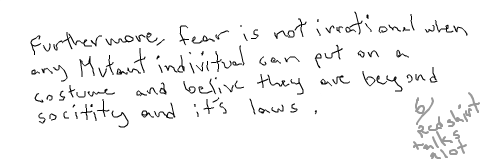 Furthermore, fear is not irrational when
any Mutant indivitual can put on a
costume and belive they are beyond
socitity and it's laws.
by
Redshirt
talks
alot